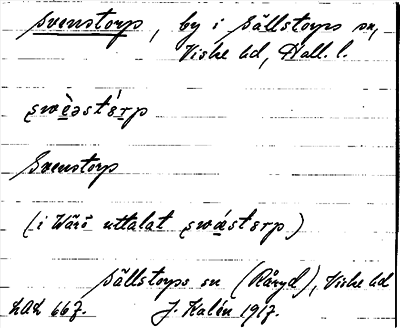 Svenstorp, by i Sällstorps sn,
Viske hd, Hall. l.
swèəstʹərp
Svenstorp
(i Värö uttalat swástərp)
Sällstorps sn (Råryd), Viske hd
LAL 667. J. Kalén 1917.